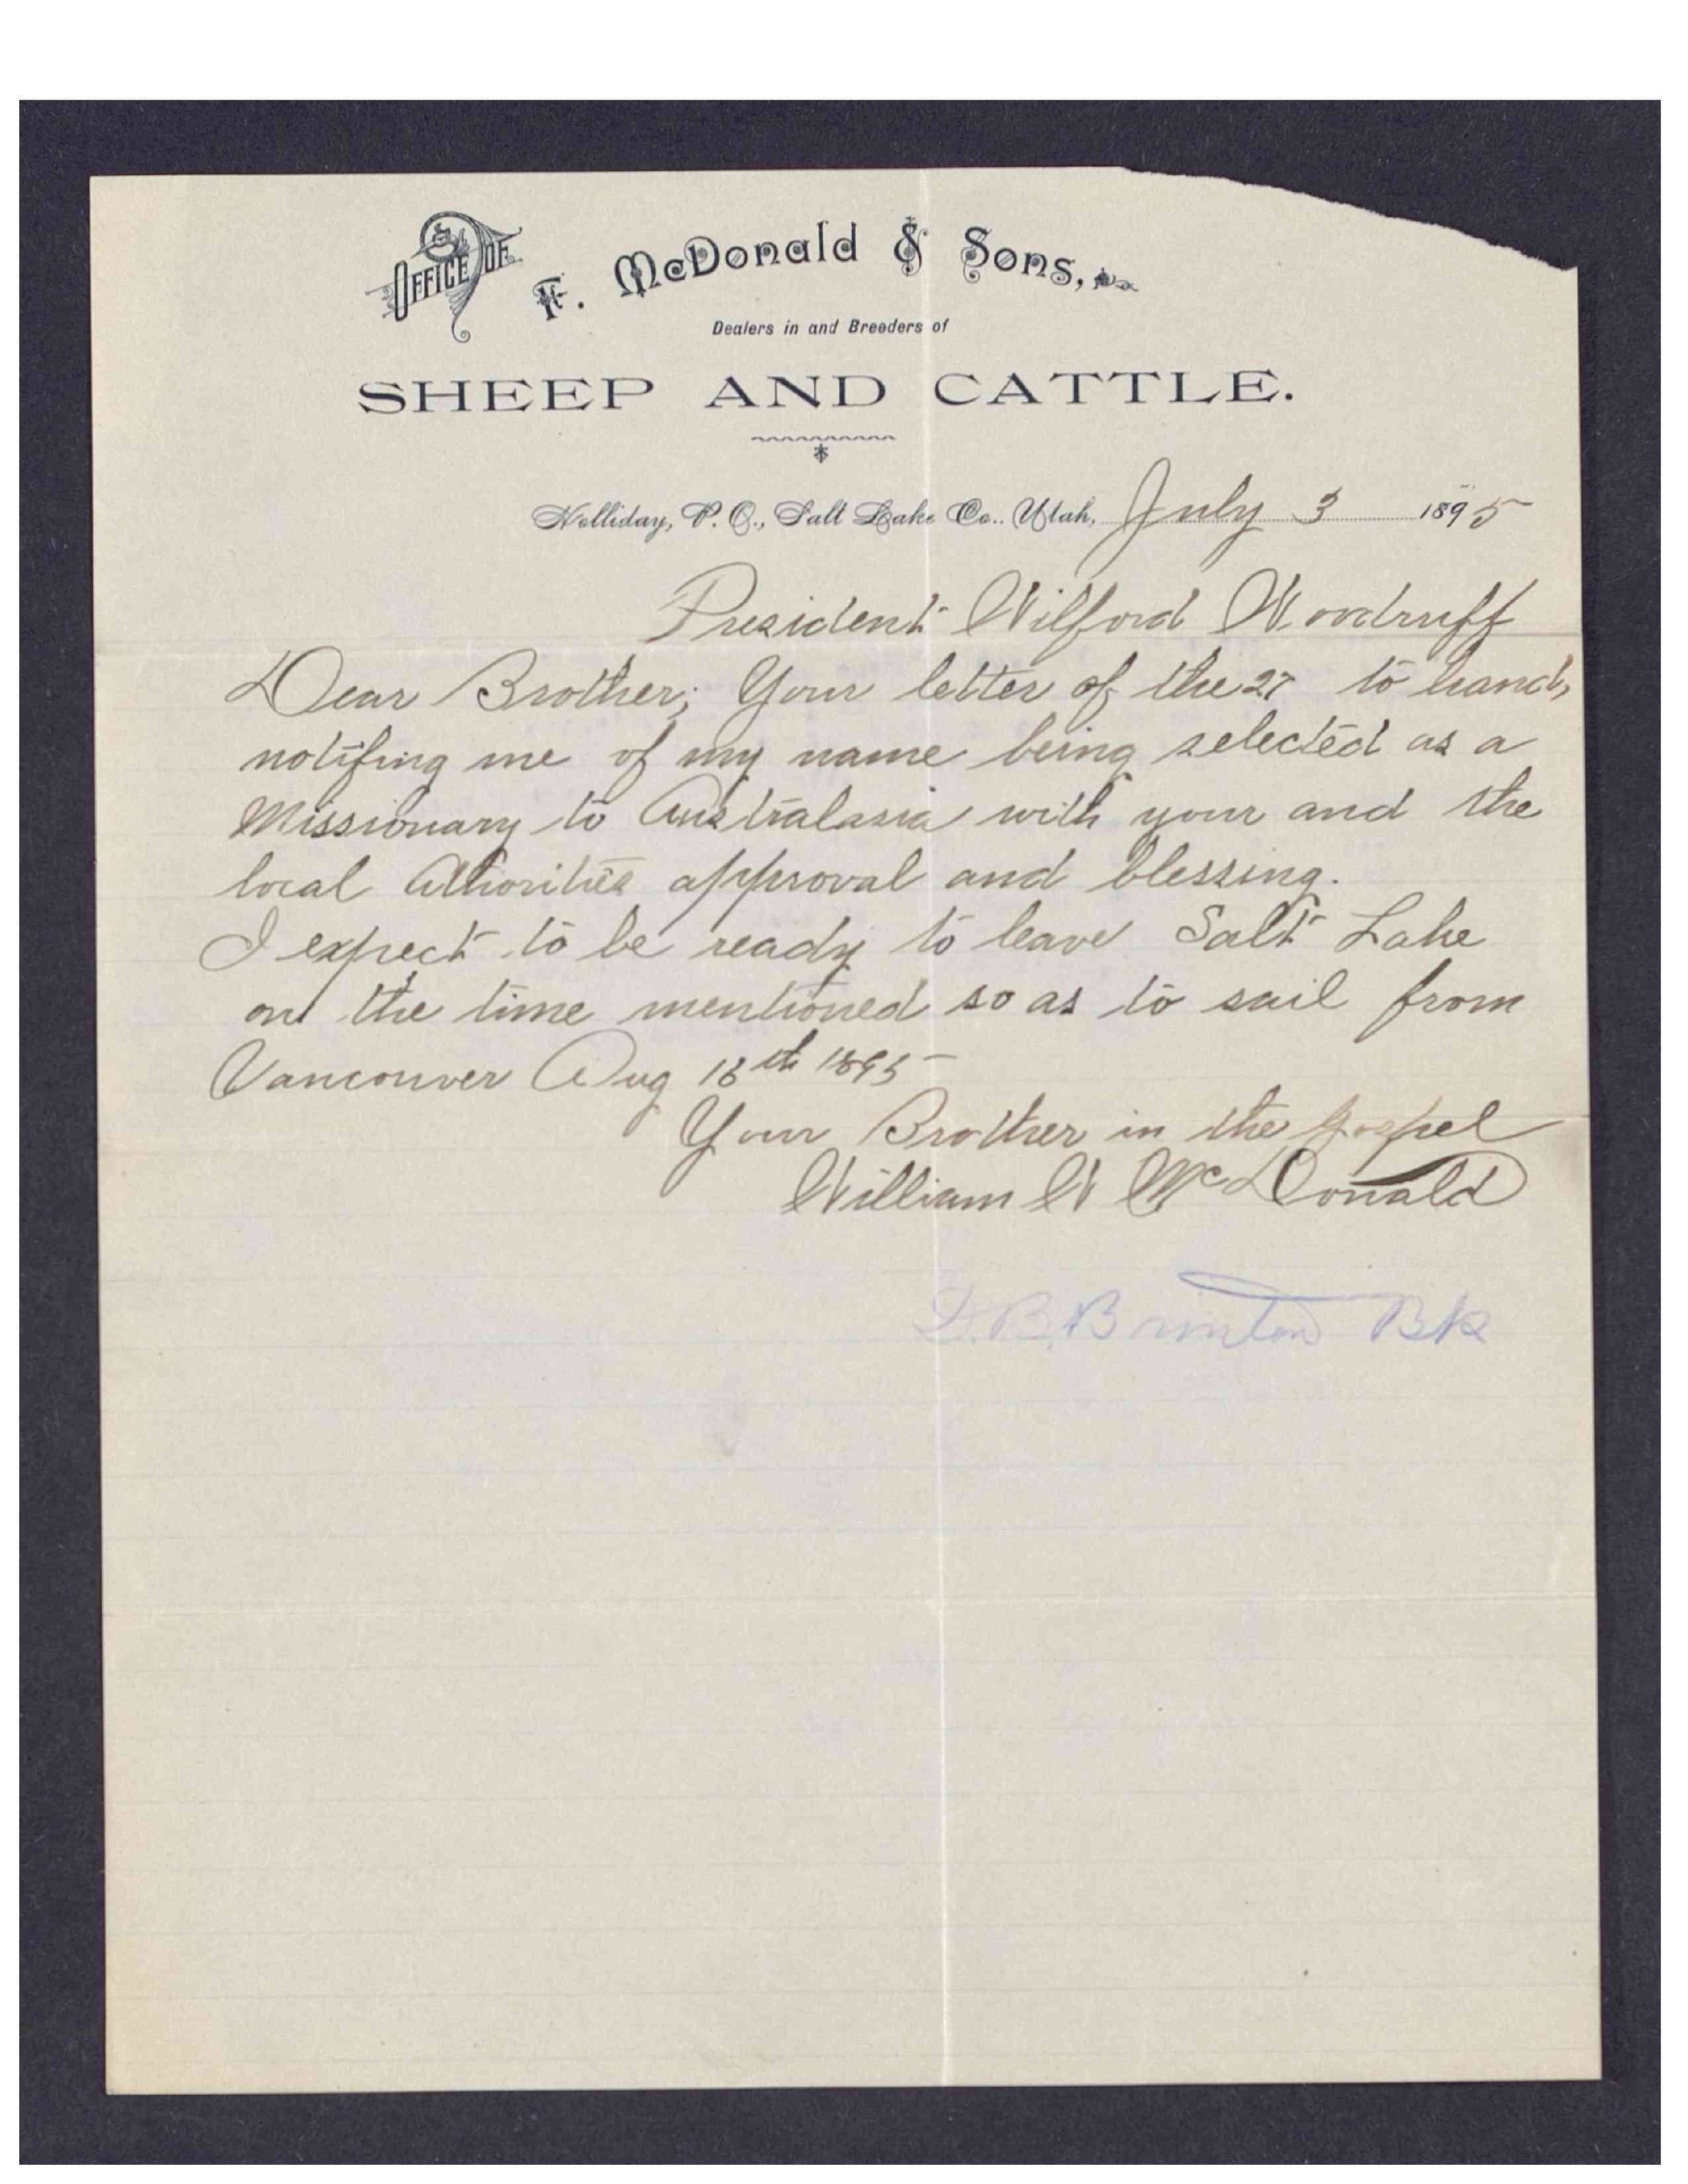 OFFICE OF
F. McDonald & Sons,
Dealers in and Breeders of
SHEEP AND CATTLE.
Holliday, P. O., Salt Lake Co.. Utah, July 3 1895
President Wilford Woodruff
Dear Brother; Your letter of the 27 to hand,
notifing me of my name being selected as a
Missionary to Australasia with your and the
local Athorities approval and blessing.
I expect to be ready to leave Salt Lake
on the time mentioned so as to sail from
Vancouver Aug 16th 1895
Your Brother in the gospel
William W McDonald
D. B. Brinton Bp